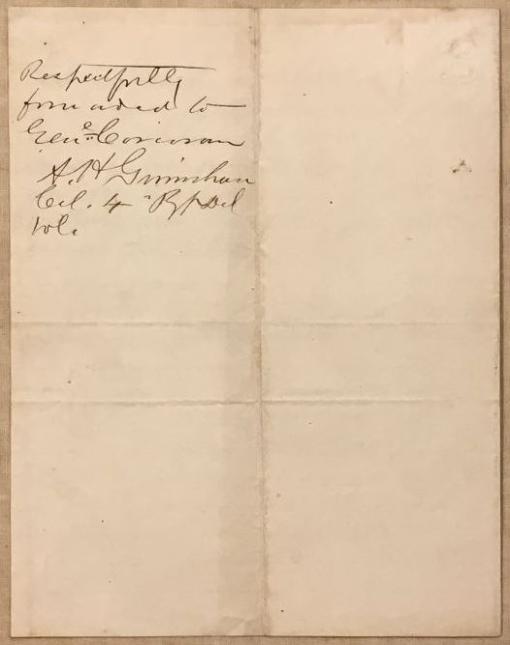 Respectfully
forwarded to
Genl. Corcoran
A. H. Grimshaw
Col. 4 Rgt Del
Vol.